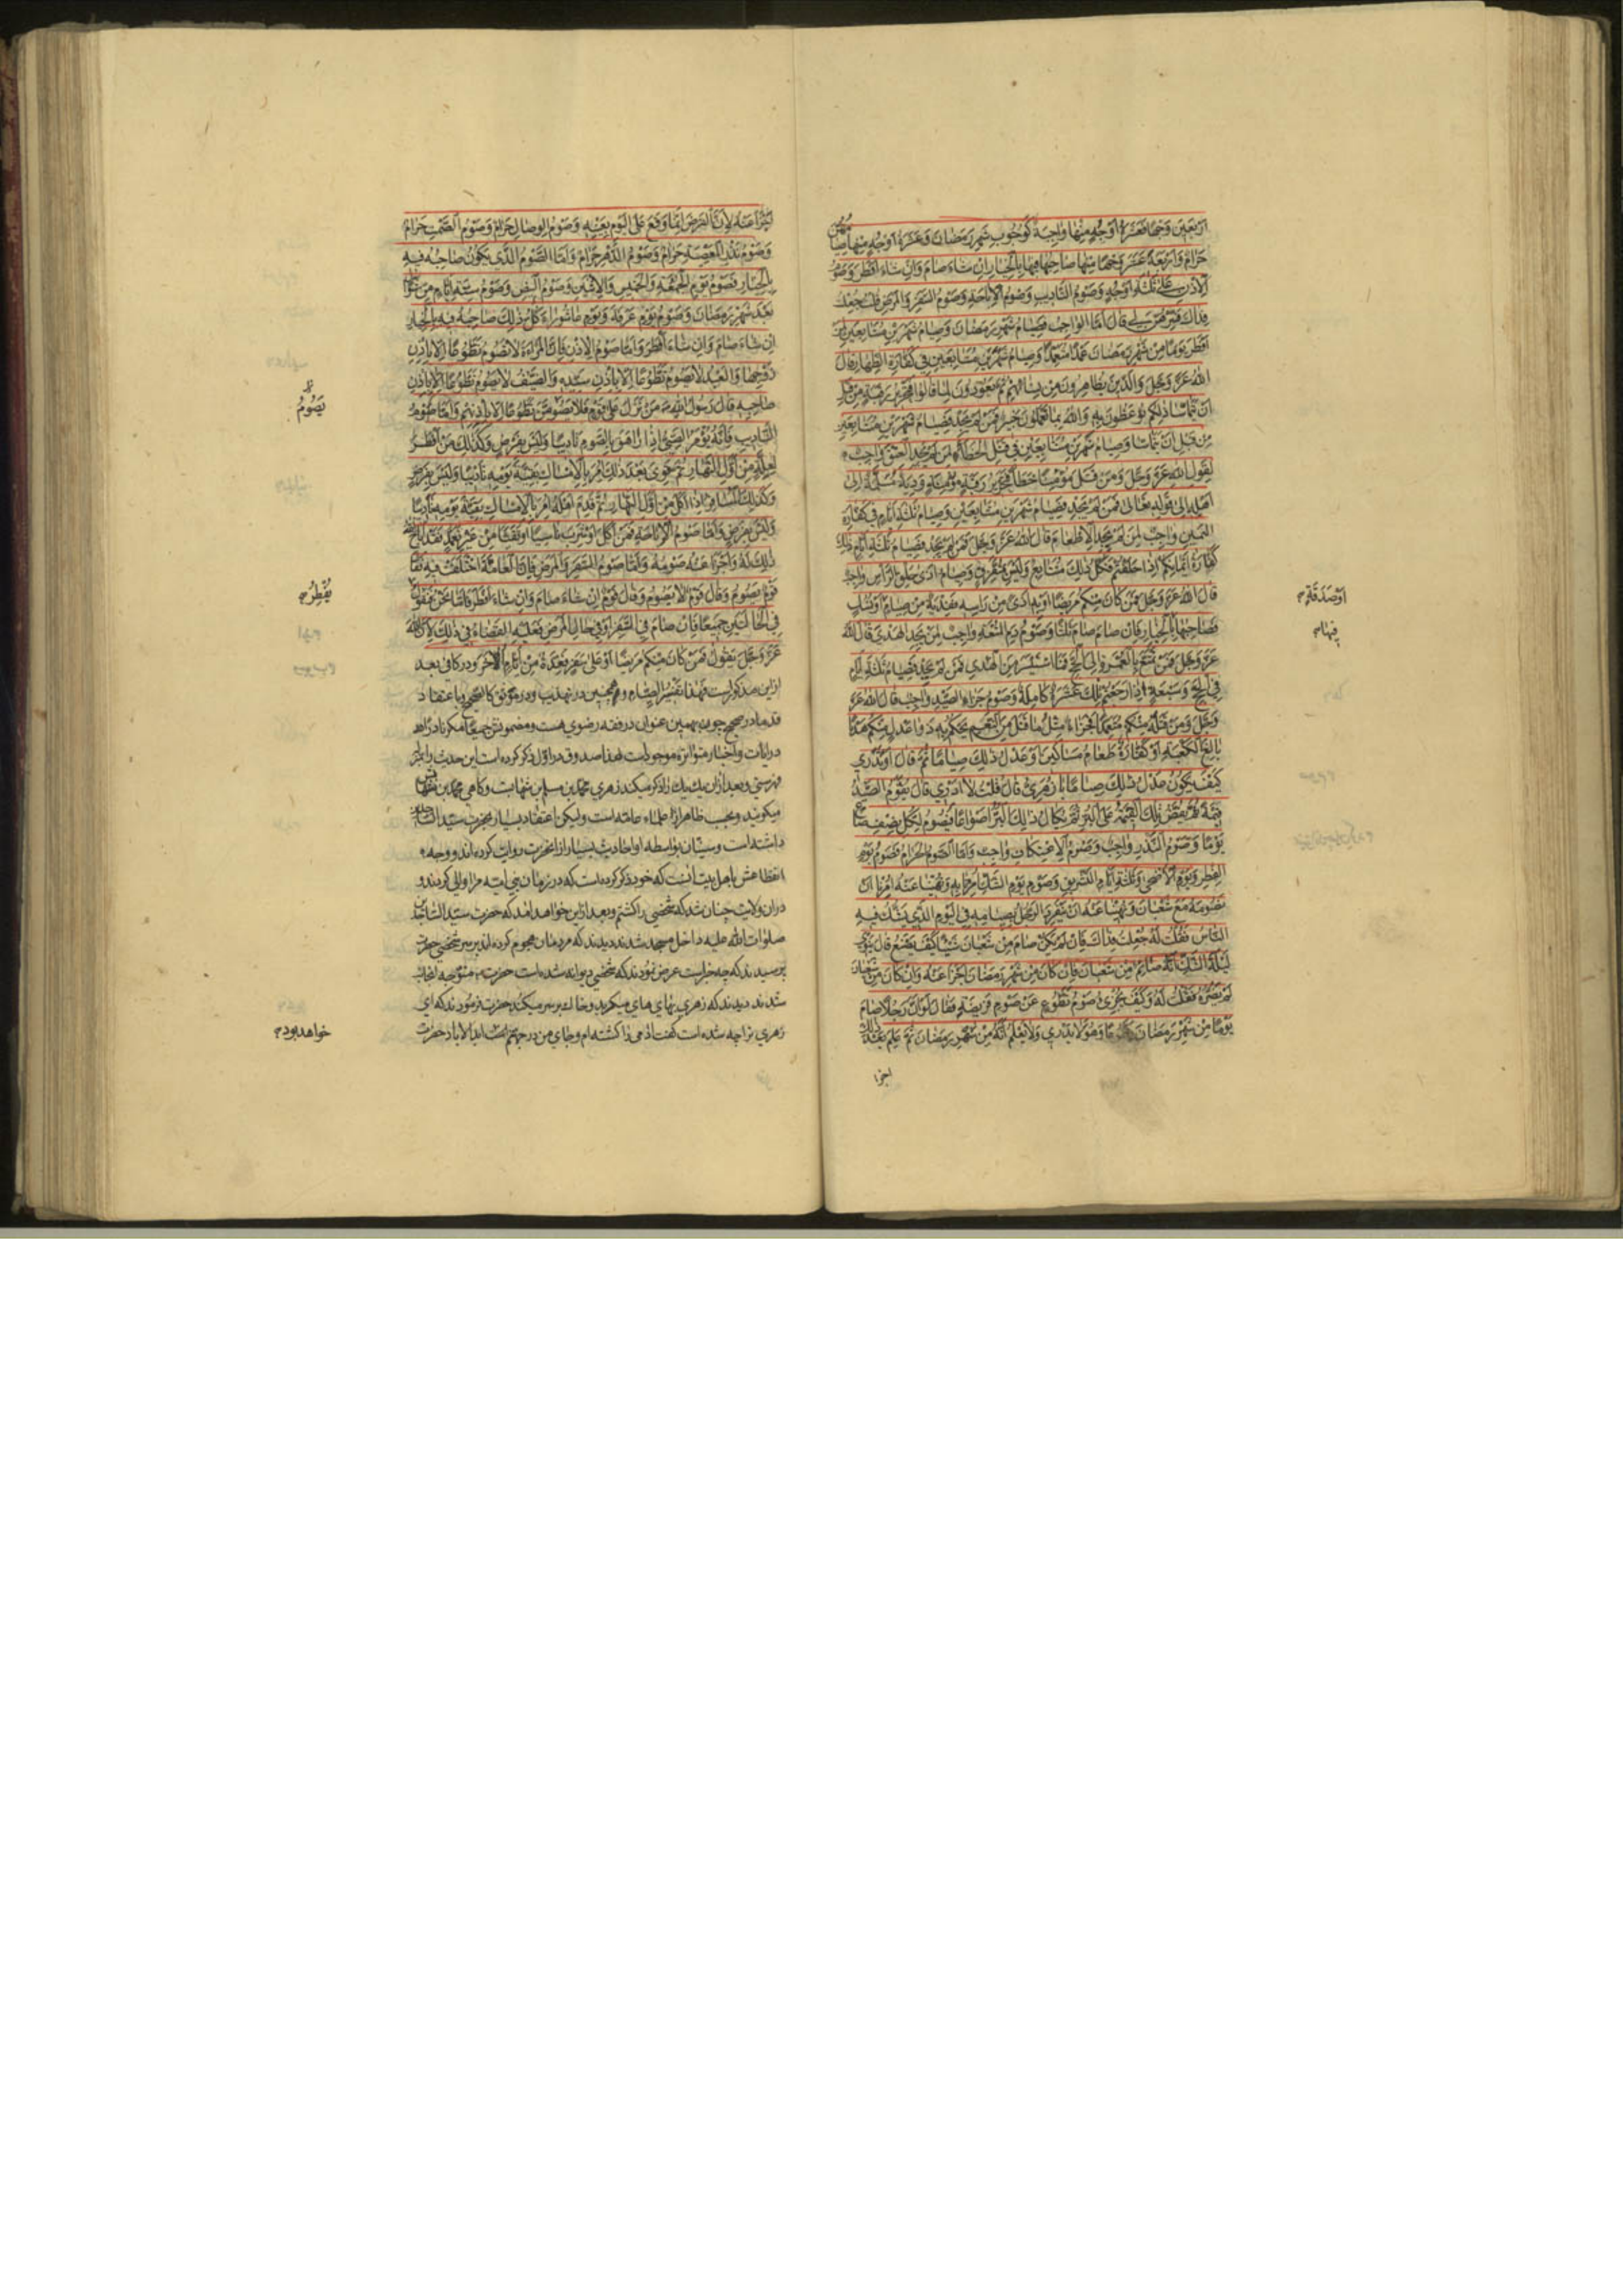 اَرْبَعینَ وَجْهًا فَعَشَرَةُ اَوْجُهٍ مِنْها واجِبَةٌ كَوُجُوبِ شَهْرِ رَمَضانَ وَعَشَرَةُ اَوْجُهٍ مِنْها صیامُهُنَّ
حَرامٌ وَاَرْبَعَةَ عَشَرَ وَجْهًا مِنْها صاحِبُها فیها بِالْخِیارِ اِنْ شاءَ صامَ وَاِنْ شاءَ اَفْطَرَ وَصَوْمُ
الْاِذْنِ عَلی ثَلثَةِ اَوْجُهٍ وَصَوْمُ التَّادیبِ وَصَوْمُ الْاِباحَةِ وَصَوْمُ السَّفَرِ وَالْمَرَضِ قُلْتُ جُعِلْتُ
فِداكَ فَسِّرْهُنَّ لی قالَ اَمَّا الْواجِبُ فَصِیامُ شَهْرِ رَمَضانَ وَصِیامُ شَهْرَیْنِ مُتَتابِعَیْنِ لِمَنْ
اَفْطَرَ یَوْمًا مِنْ شَهْرِ رَمَضانَ عَمْدًا مُتَعَمِّدًا وَصِیامُ شَهْرَیْنِ مُتَتابِعَیْنِ فی كَفّارَةِ الظِّهارِ قالَ
اللّٰهُ عَزَّ وَجَلَّ وَالَّذینَ یُظاهِرُونَ مِنْ نِسائِهِمْ ثُمَّ یَعُودُونَ لِما قالُوا فَتَحْریرُ رَقَبَةٍ مِنْ قَبْلِ
اَنْ یَتَماسّا ذٰلِكُمْ تُوعَظُونَ بِهِ وَاللّٰهُ بِما تَعْمَلُونَ خَبیرٌ فَمَنْ لَمْ یَجِدْ فَصِیامُ شَهْرَیْنِ مُتَتابِعَیْنِ
مِنْ قَبْلِ اَنْ یَتَماسّا وَصِیامُ شَهْرَیْنِ مُتَتابِعَیْنِ فی قَتْلِ الْخَطاءِ لِمَنْ لَمْ یَجِدِ الْعِتْقَ واجِبٌ
لِقَوْلِ اللّٰهِ عَزَّ وَجَلَّ وَمَنْ قَتَلَ مُؤْمِنًا خَطَأً فَتَحْریرُ رَقَبَةٍ مُؤْمِنَةٍ وَدِیَةٌ مُسَلَّمَةٌ اِلی
اَهْلِهِ اِلی قَوْلِهِ تَعالی فَمَنْ لَمْ یَجِدْ فَصِیامُ شَهْرَیْنِ مُتَتابِعَیْنِ وَصِیامُ ثَلثَةِ اَیّامٍ فی كَفّارَةِ
الْیَمینِ واجِبٌ لِمَنْ لَمْ یَجِدِ الْاِطْعامَ قالَ اللّٰهُ عَزَّ وَجَلَّ فَمَنْ لَمْ یَجِدْ فَصِیامُ ثَلثَةِ اَیّامٍ ذٰلِكَ
كَفّارَةُ اَیْمانِكُمْ اِذا حَلَفْتُمْ فَكُلُّ ذٰلِكَ مُتَتابِعٌ وَلَیْسَ بِمُتَفَرِّقٍ وَصِیامُ اَذی حَلْقِ الرَّأْسِ واجِبٌ
قالَ اللّٰهُ عَزَّ وَجَلَّ فَمَنْ كانَ مِنْكُمْ مَریضًا اَوْ بِهِ اَذیً مِنْ رَأْسِهِ فَفِدْیَةٌ مِنْ صِیامٍ اَوْ نُسُكٍ
اَوْصَدَقَةٍ م
فَصاحِبُها بِالْخِیارِ فَاِنْ صامَ صامَ ثَلثًا وَصَوْمُ دَمِ الْمُتْعَةِ واجِبٌ لِمَنْ لَمْ یَجِدِ الْهَدْیَ قالَ اللّٰهُ
فِیها م
عَزَّ وَجَلَّ فَمَنْ تَمَتَّعَ بِالْعُمْرَةِ اِلَی الْحَجِّ فَمَا اسْتَیْسَرَ مِنَ الْهَدْیِ فَمَنْ لَمْ یَجِدْ فَصِیامُ ثَلثَةِ اَیّامٍ
فِی الْحَجِّ وَسَبْعَةٍ اِذا رَجَعْتُمْ تِلْكَ عَشَرَةٌ كامِلَةٌ وَصَوْمُ جَزاءِ الصَّیْدِ واجِبٌ قالَ اللّٰهُ عَزَّ
وَجَلَّ وَمَنْ قَتَلَهُ مِنْكُمْ مُتَعَمِّدًا فَجَزاءٌ مِثْلُ ما قَتَلَ مِنَ النَّعَمِ یَحْكُمُ بِهِ ذَوا عَدْلٍ مِنْكُمْ هَدْیًا
بالِغَ الْكَعْبَةِ اَوْ كَفّارَةٌ طَعامُ مَساكینَ اَوْ عَدْلُ ذٰلِكَ صِیامًا ثُمَّ قالَ اَوَتَدْری
كَیْفَ یَكُونُ عَدْلُ ذٰلِكَ صِیامًا یا زُهْرِیُّ قالَ قُلْتُ لا اَدْری قالَ یُقَوَّمُ الصَّیْدُ
قیمَةً ثُمَّ یُفَضُّ تِلْكَ الْقیمَةُ عَلَی الْبُرِّ ثُمَّ یُكالُ ذٰلِكَ الْبُرُّ اَصْواعًا فَیَصُومُ لِكُلِّ نِصْفِ صاعٍ
یَوْمًا وَصَوْمُ النَّذْرِ واجِبٌ وَصَوْمُ الْاِعْتِكافِ واجِبٌ وَاَمَّا الصَّوْمُ الْحَرامُ فَصَوْمُ یَوْمِ
الْفِطْرِ وَیَوْمِ الْاَضْحی وَثَلثَةِ اَیّامِ التَّشْریقِ وَصَوْمُ یَوْمِ الشَّكِّ اُمِرْنا بِهِ وَنُهینا عَنْهُ اُمِرْنا اَنْ
نَصُومَهُ مَعَ شَعْبانَ وَنُهینا عَنْهُ اَنْ یَنْفَرِدَ الرَّجُلُ بِصِیامِهِ فِی الْیَوْمِ الَّذی یَشُكُّ فیهِ
النّاسُ فَقُلْتُ لَهُ جُعِلْتُ فِداكَ فَاِنْ لَمْ یَكُنْ صامَ مِنْ شَعْبانَ شَیْئًا كَیْفَ یَصْنَعُ قالَ یَنْوی
لَیْلَةَ الشَّكِّ اَنَّهُ صائِمٌ مِنْ شَعْبانَ فَاِنْ كانَ مِنْ شَهْرِ رَمَضانَ اَجْزَأَ عَنْهُ وَاِنْ كانَ مِنْ شَعْبانَ
لَمْ یَضُرَّهُ فَقُلْتُ لَهُ وَكَیْفَ یُجْزِئُ صَوْمُ تَطَوُّعٍ عَنْ صَوْمِ فَریضَةٍ فَقالَ لَوْ اَنَّ رَجُلًا صامَ
یَوْمًا مِنْ شَهْرِ رَمَضانَ تَطَوُّعًا وَهُوَ لا یَدْری وَلا یَعْلَمُ اَنَّهُ مِنْ شَهْرِ رَمَضانَ ثُمَّ عَلِمَ بَعْدَ ذٰلِكَ
اجزا
اَجْزَأَ عَنْهُ لِاَنَّ الْفَرْضَ اِنَّما وَقَعَ عَلَی الْیَوْمِ بِعَیْنِهِ وَصَوْمُ الْوِصالِ حَرامٌ وَصَوْمُ الصَّمْتِ حَرامٌ
وَصَوْمُ نَذْرِ الْمَعْصِیَةِ حَرامٌ وَصَوْمُ الدَّهْرِ حَرامٌ وَاَمَّا الصَّوْمُ الَّذی یَكُونُ صاحِبُهُ فیهِ
بِالْخِیارِ فَصَوْمُ یَوْمِ الْجُمُعَةِ وَالْخَمیسِ وَالْاِثْنَیْنِ وَصَوْمُ الْبیضِ وَصَوْمُ سِتَّةِ اَیّامٍ مِنْ شَوّالٍ
بَعْدَ شَهْرِ رَمَضانَ وَصَوْمُ یَوْمِ عَرَفَةَ وَیَوْمِ عاشُوراءَ كُلُّ ذٰلِكَ صاحِبُهُ فیهِ بِالْخِیارِ
اِنْ شاءَ صامَ وَاِنْ شاءَ اَفْطَرَ وَاَمّا صَوْمُ الْاِذْنِ فَاِنَّ الْمَرْأَةَ لا تَصُومُ تَطَوُّعًا اِلّا بِاِذْنِ
زَوْجِها وَالْعَبْدُ لا یَصُومُ تَطَوُّعًا اِلّا بِاِذْنِ سَیِّدِهِ وَالضَّیْفُ لا یَصُومُ تَطَوُّعًا اِلّا بِاِذْنِ
صاحِبِهِ قالَ رَسُولُ اللّٰهِ ص مَنْ نَزَلَ عَلی قَوْمٍ فَلا یَصُومَنَّ تَطَوُّعًا اِلّا بِاِذْنِهِمْ وَاَمّا صَوْمُ
یَصُومُ
التَّادیبِ فَاِنَّهُ یُؤْمَرُ الصَّبِیُّ اِذا راهَقَ بِالصَّوْمِ تَادیبًا وَلَیْسَ بِفَرْضٍ وَكَذٰلِكَ مَنْ اَفْطَرَ
لِعِلَّةٍ مِنْ اَوَّلِ النَّهارِ ثُمَّ قَوِیَ بَعْدَ ذٰلِكَ اُمِرَ بِالْاِمْساكِ بَقِیَّةَ یَوْمِهِ تَادیبًا وَلَیْسَ بِفَرْضٍ
وَكَذٰلِكَ الْمُسافِرُ اِذا اَكَلَ مِنْ اَوَّلِ النَّهارِ ثُمَّ قَدِمَ اَهْلَهُ اُمِرَ بِالْاِمْساكِ بَقِیَّةَ یَوْمِهِ تَادیبًا
وَلَیْسَ بِفَرْضٍ وَاَمّا صَوْمُ الْاِباحَةِ فَمَنْ اَكَلَ اَوْ شَرِبَ ناسِیًا اَوْ تَقَیَّأَ مِنْ غَیْرِ تَعَمُّدٍ فَقَدْ اَباحَ اللّٰهُ
ذٰلِكَ لَهُ وَاَجْزَأَ عَنْهُ صَوْمُهُ وَاَمّا صَوْمُ السَّفَرِ وَالْمَرَضِ فَاِنَّ الْعامَّةَ اخْتَلَفَتْ فیهِ فَقالَ
قَوْمٌ یَصُومُ وَقالَ قَوْمٌ لا یَصُومُ وَقالَ قَوْمٌ اِنْ شاءَ صامَ وَاِنْ شاءَ اَفْطَرَ فَاَمّا نَحْنُ فَنَقُولُ
یُفْطِرُ م
فِی الْحالَتَیْنِ جَمیعًا فَاِنْ صامَ فِی السَّفَرِ اَوْ فی حالِ الْمَرَضِ فَعَلَیْهِ الْقَضاءُ فی ذٰلِكَ لِاَنَّ اللّٰهَ
عَزَّ وَجَلَّ یَقُولُ فَمَنْ كانَ مِنْكُمْ مَریضًا اَوْ عَلی سَفَرٍ فَعِدَّةٌ مِنْ اَیّامٍ اُخَرَ ودر كافی بعد
ازین مذكور است فهذا تفسیر الصیام وهمچنین در تهذیب ودر موثق كالصحیح وبا عتقاد
قدما در صحیح چون بهمین عنوان در فقه رضوی هست ومضمونش جمیعا مكر نادرا در
در ایات واخبار متواتره موجود است لهذا صدوق در اول ذكر كرده است این حدیث را بطر
فهرستی وبعد ازان یك یك را ذكر میكند زهری محمد بن مسلم بن شهابست وكاهی محمد بن شهابش
میكویند وبحسب ظاهر از علماء عامه است ولیكن اعتقاد بسیار بحضرت سید الساجدین
داشته است وسنیان بواسطه او احادیث بسیار از انحضرت روایت كرده اند و وجه
انقطاعش باهل بیت انست كه خود ذكر كرده است كه در زمان بنی امیه مرا والی كردند و
دران ولایت چنان شد كه شخصی را كشتم وبعد ازین خواهد امد كه حضرت سید الساجدین
صلوات الله علیه داخل مسجد شدند دیدند كه مردمان هجوم كرده اند بر سر شخصی حضرت
پرسیدند كه چه خبر است عرض نمودند كه شخصی دیوانه شده است حضرت متوجه انجانب
شدند دیدند كه زهری بهای های میكرید وخاك بر سر میكند حضرت فرمودند كه ای
زهری ترا چه شده است كفت ادمی را كشته ام وجای من در جهنم است ابد الاباد حضرت
خواهد بود م